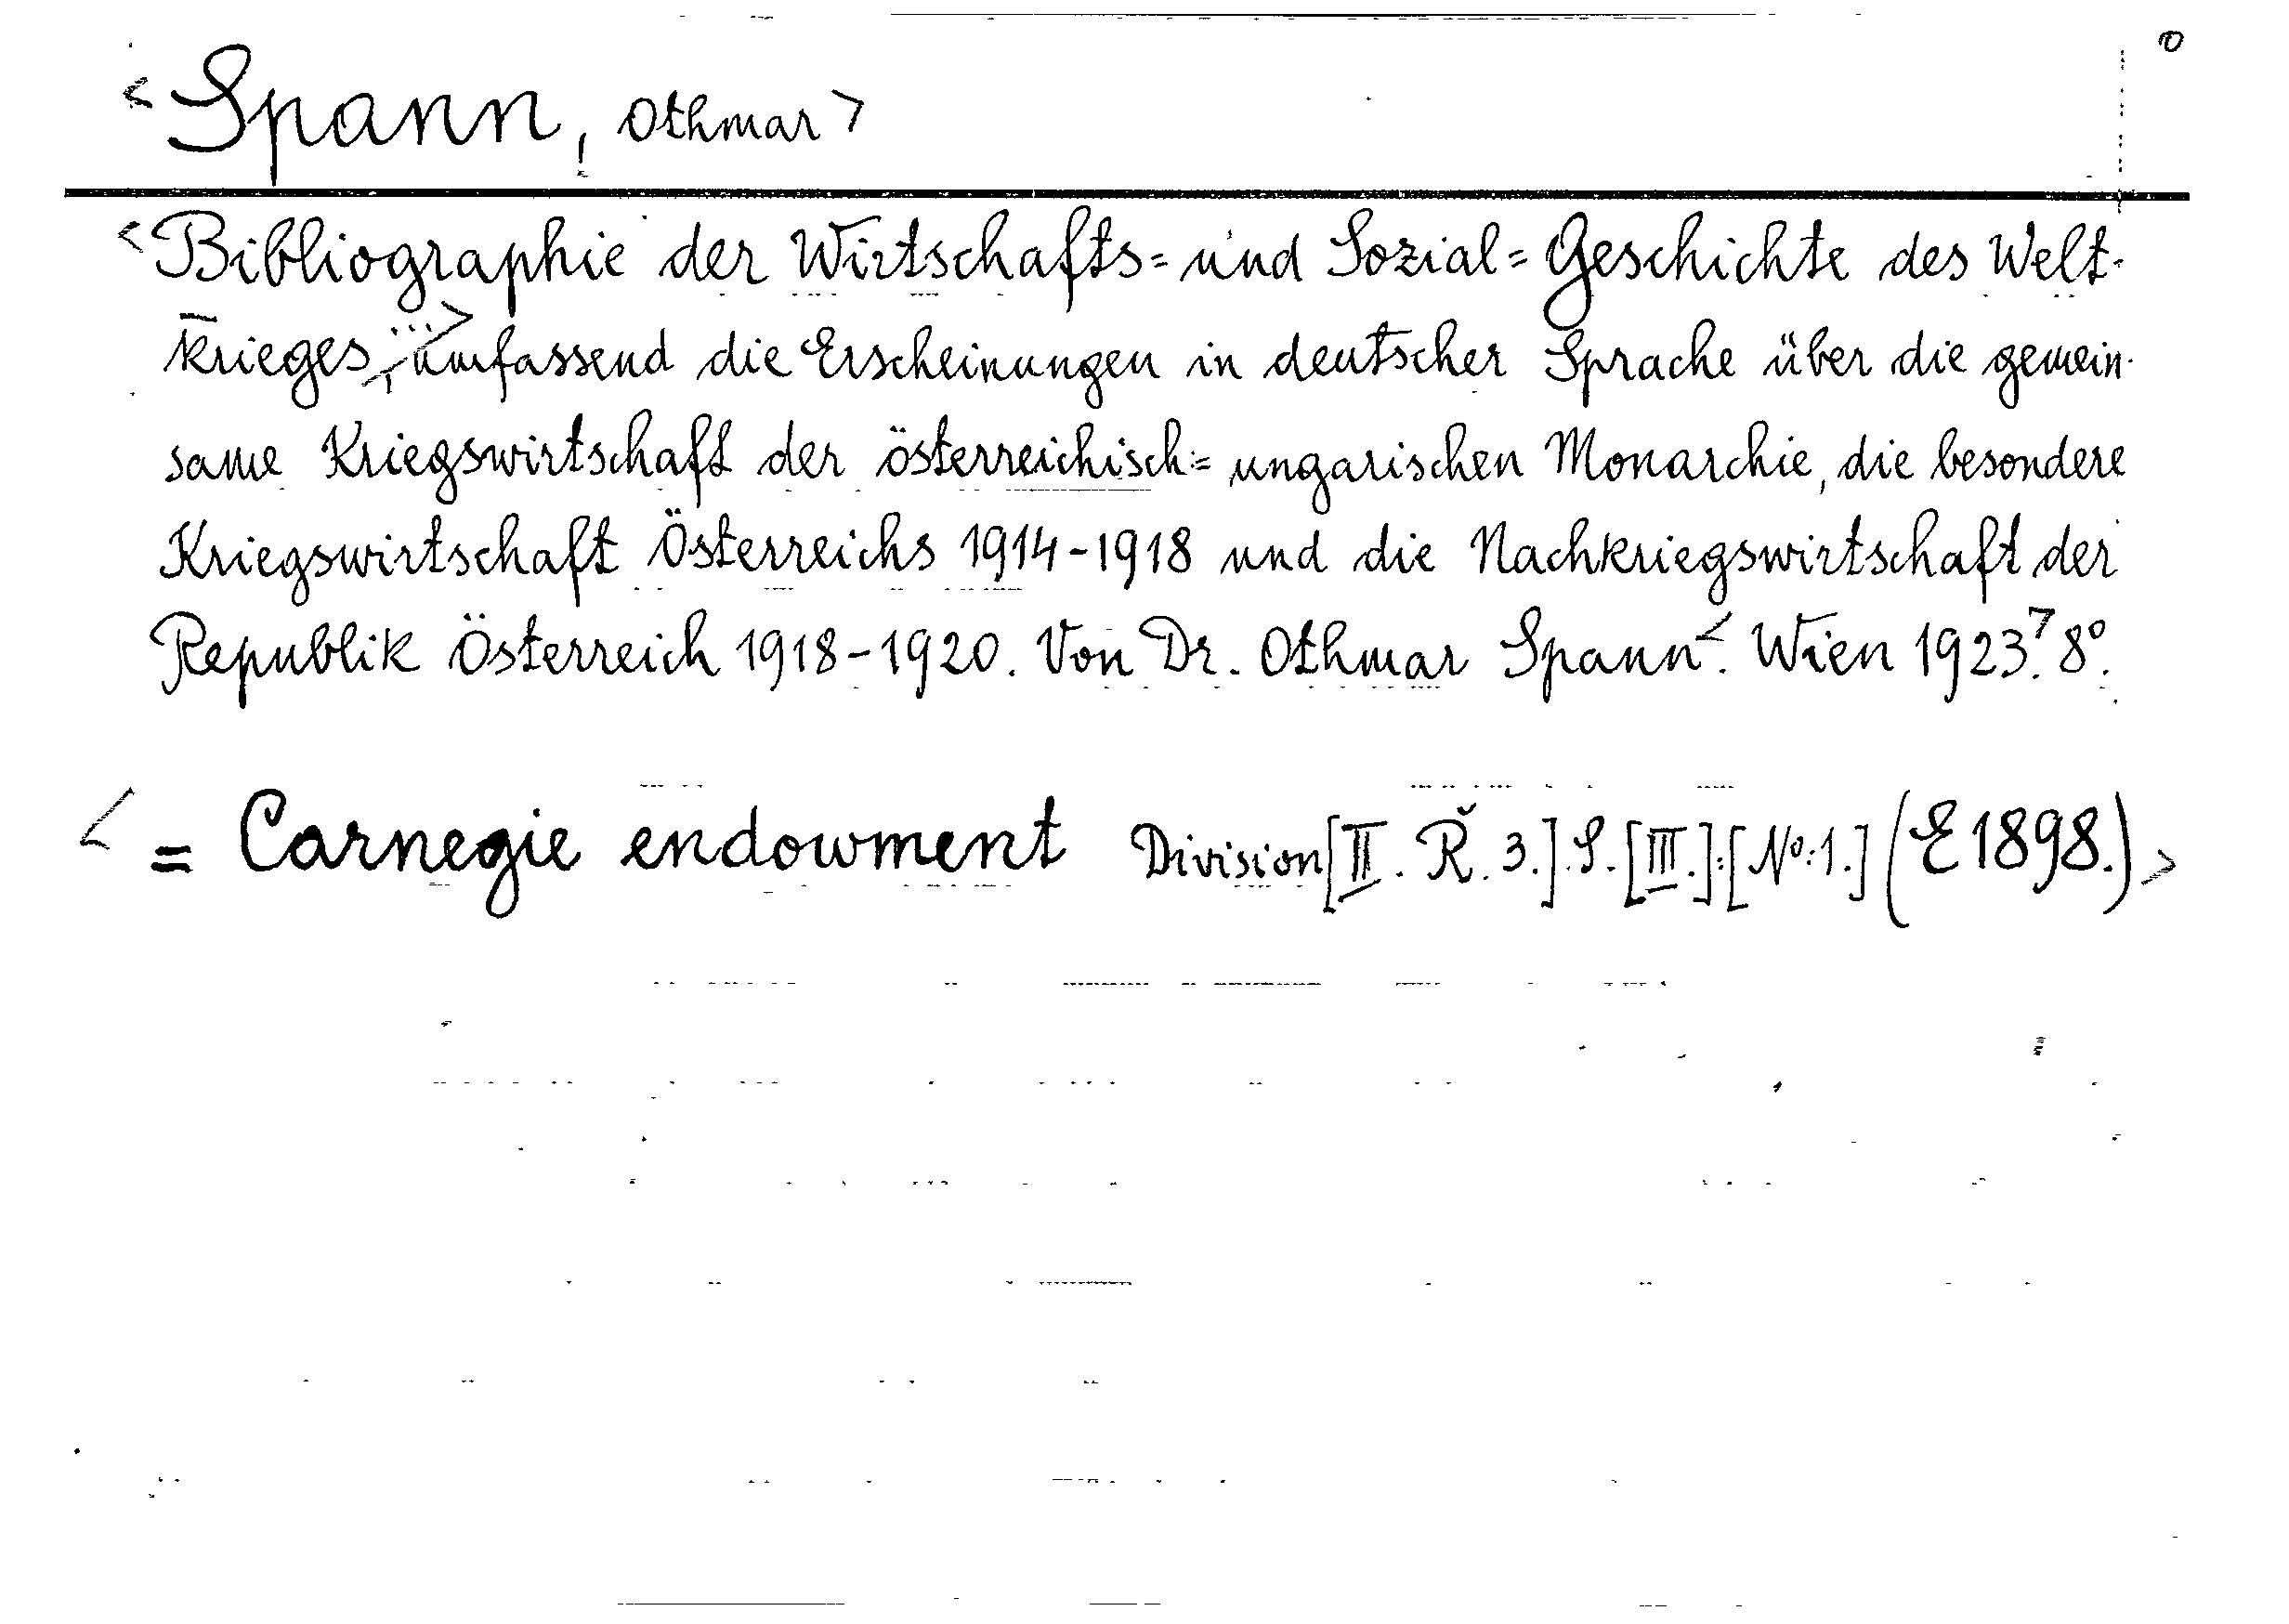 0
<Spann, Othmar>
<Bibliographie der Wirtschafts= und Sozial=Geschichte des Welt-
krieges, ...> umfassend die Erscheinungen in deutscher Sprache über die gemein-
same Kriegswirtschaft der österreichisch=ungarischen Monarchie, die besondere
Kriegswirtschaft Österreichs 1914-1918 und die Nachkriegswirtschaft der
Republik Österreich 1918-1920. Von Dr. Othmar Spann<. Wien 1923.> 8°.
< = Carnegie endowment Division [II. Ř. 3.] S. [III.]:[No:1.] (E 1898.)>